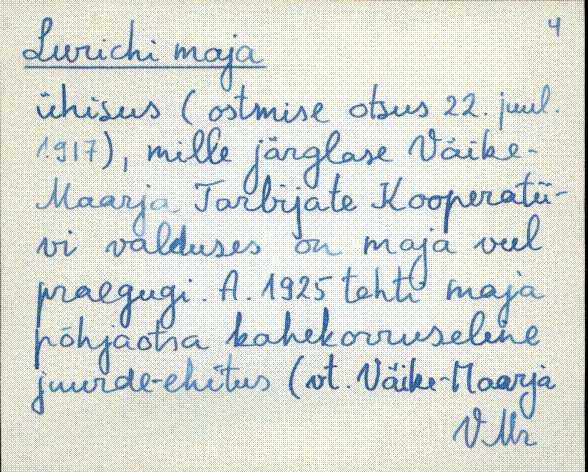 4
Lurichi maja
ühisus (ostmise otsus 22. juul.
1917), mille järglase Väike-
Maarja Tarbijate Kooperatii-
vi valduses on maja veel
praegugi. A. 1925 tehti maja
põhjaotsa kahekorruseline
juurde-ehitus (vt. Väike-Maarja
VMr